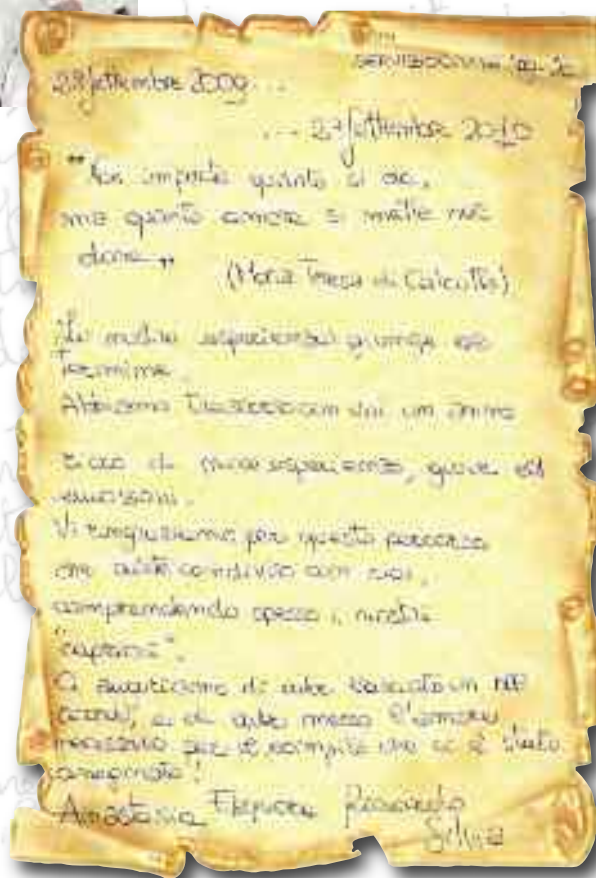 28 settembre 2009...
... 27 settembre 2010
"Non importa quanto si dà,
ma quanto amore si mette nel
dare"
(Maria Teresa di Calcutta)
La nostra esperienza giunge al
termine.
Abbiamo trascorso con voi un anno
ricco di nuove esperienze, gioie ed
emozioni.
Vi ringraziamo per questo percorso
che avete condiviso con noi,
comprendendo spesso i nostri
"capricci".
Ci auguriamo di aver lasciato un bel
ricordo, e di aver messo l'amore
necessario per il compito che ci è stato
assegnato!
Anastasia Eleonora
Silvia